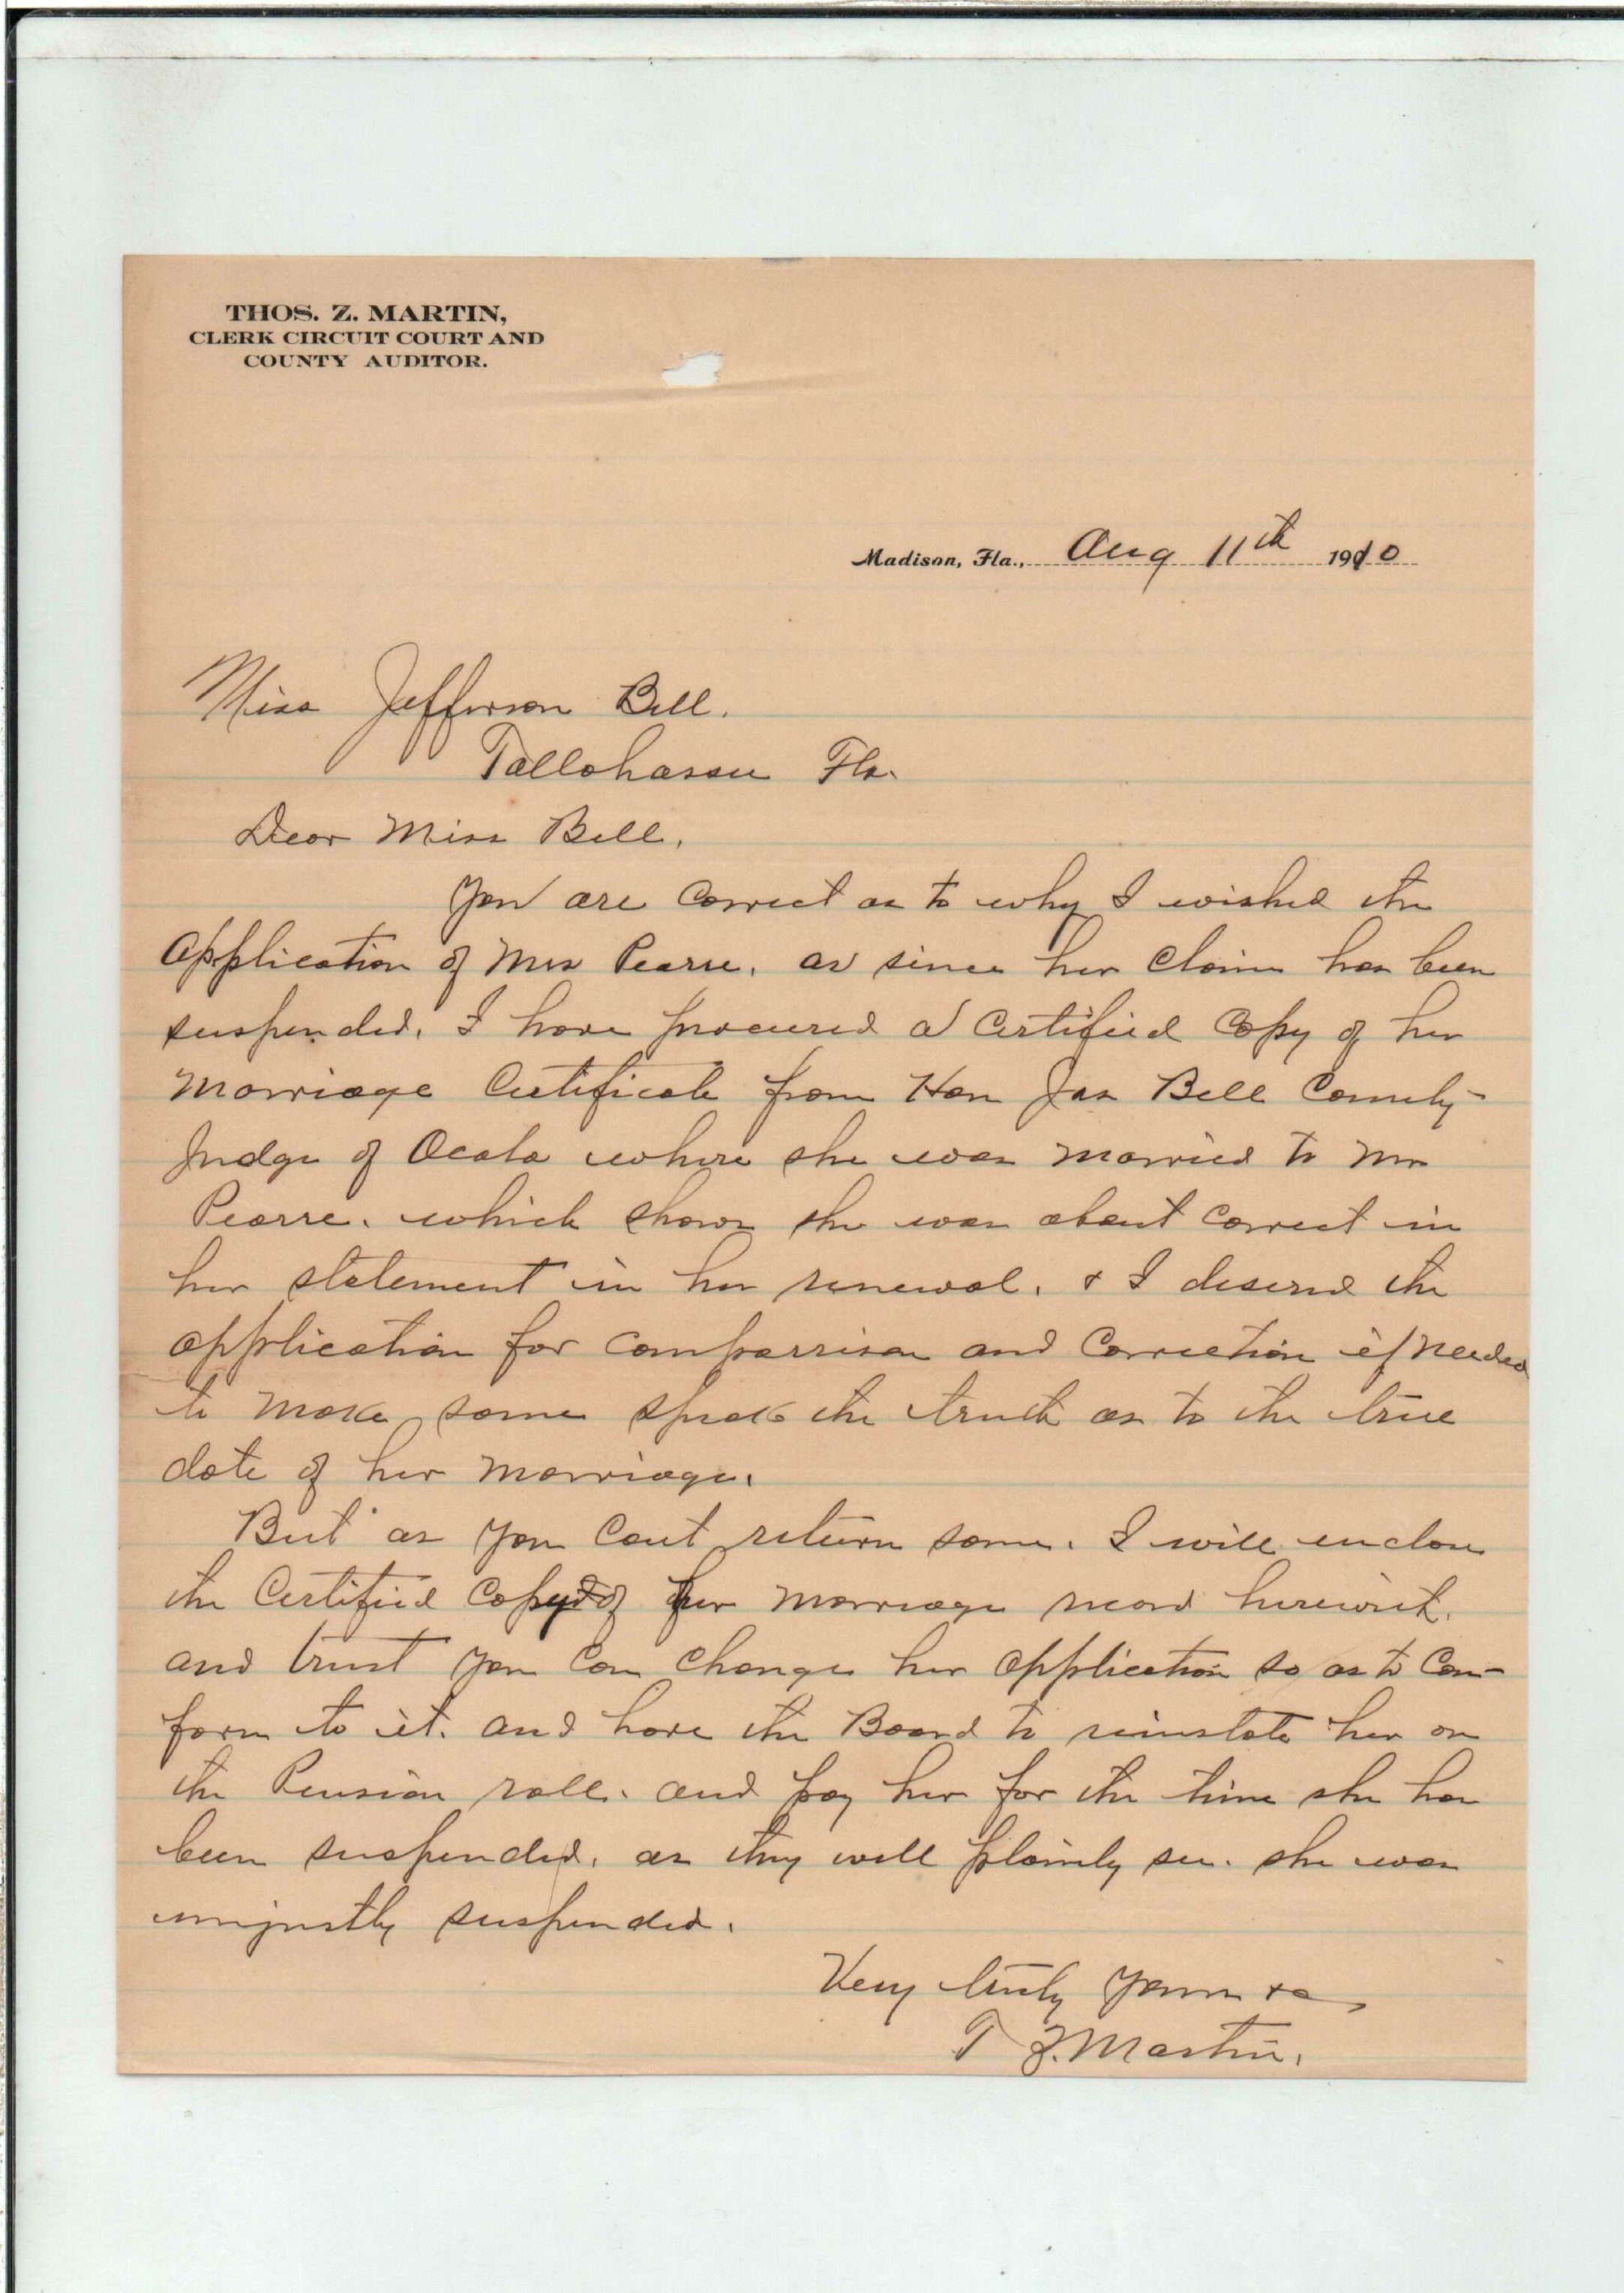 THOS. Z. MARTIN,
CLERK CIRCUIT COURT AND
COUNTY AUDITOR.
Madison, Fla., Aug 11th 1910
Miss Jefferson Bell.
Tallahassee Fla.
Dear Miss Bell,
You are correct as to why I wished the
application of Mrs Pearre. as since her claim has been
suspended. I have procured a Certified Copy of her
Marriage Certificate from Hon Jas Bell County
Judge of Ocala where she was married to Mr
Pearre. which shows she was about correct in
her statement in her renewal. & I desired the
application for comparrison and correction if needed
to make same speak the truth as to the true
date of her marriage.
But as you cant return same. I will enclose
the Certified Copy of her marriage record herewith.
and trust you can change her application so as to Con-
form to it. and have the Board to reinstate her on
the Pension roll. and pay her for the time she has
been suspended. as they will plainly see. she was
unjustly suspended.
Very truly yours &c,
T Z. Martin.